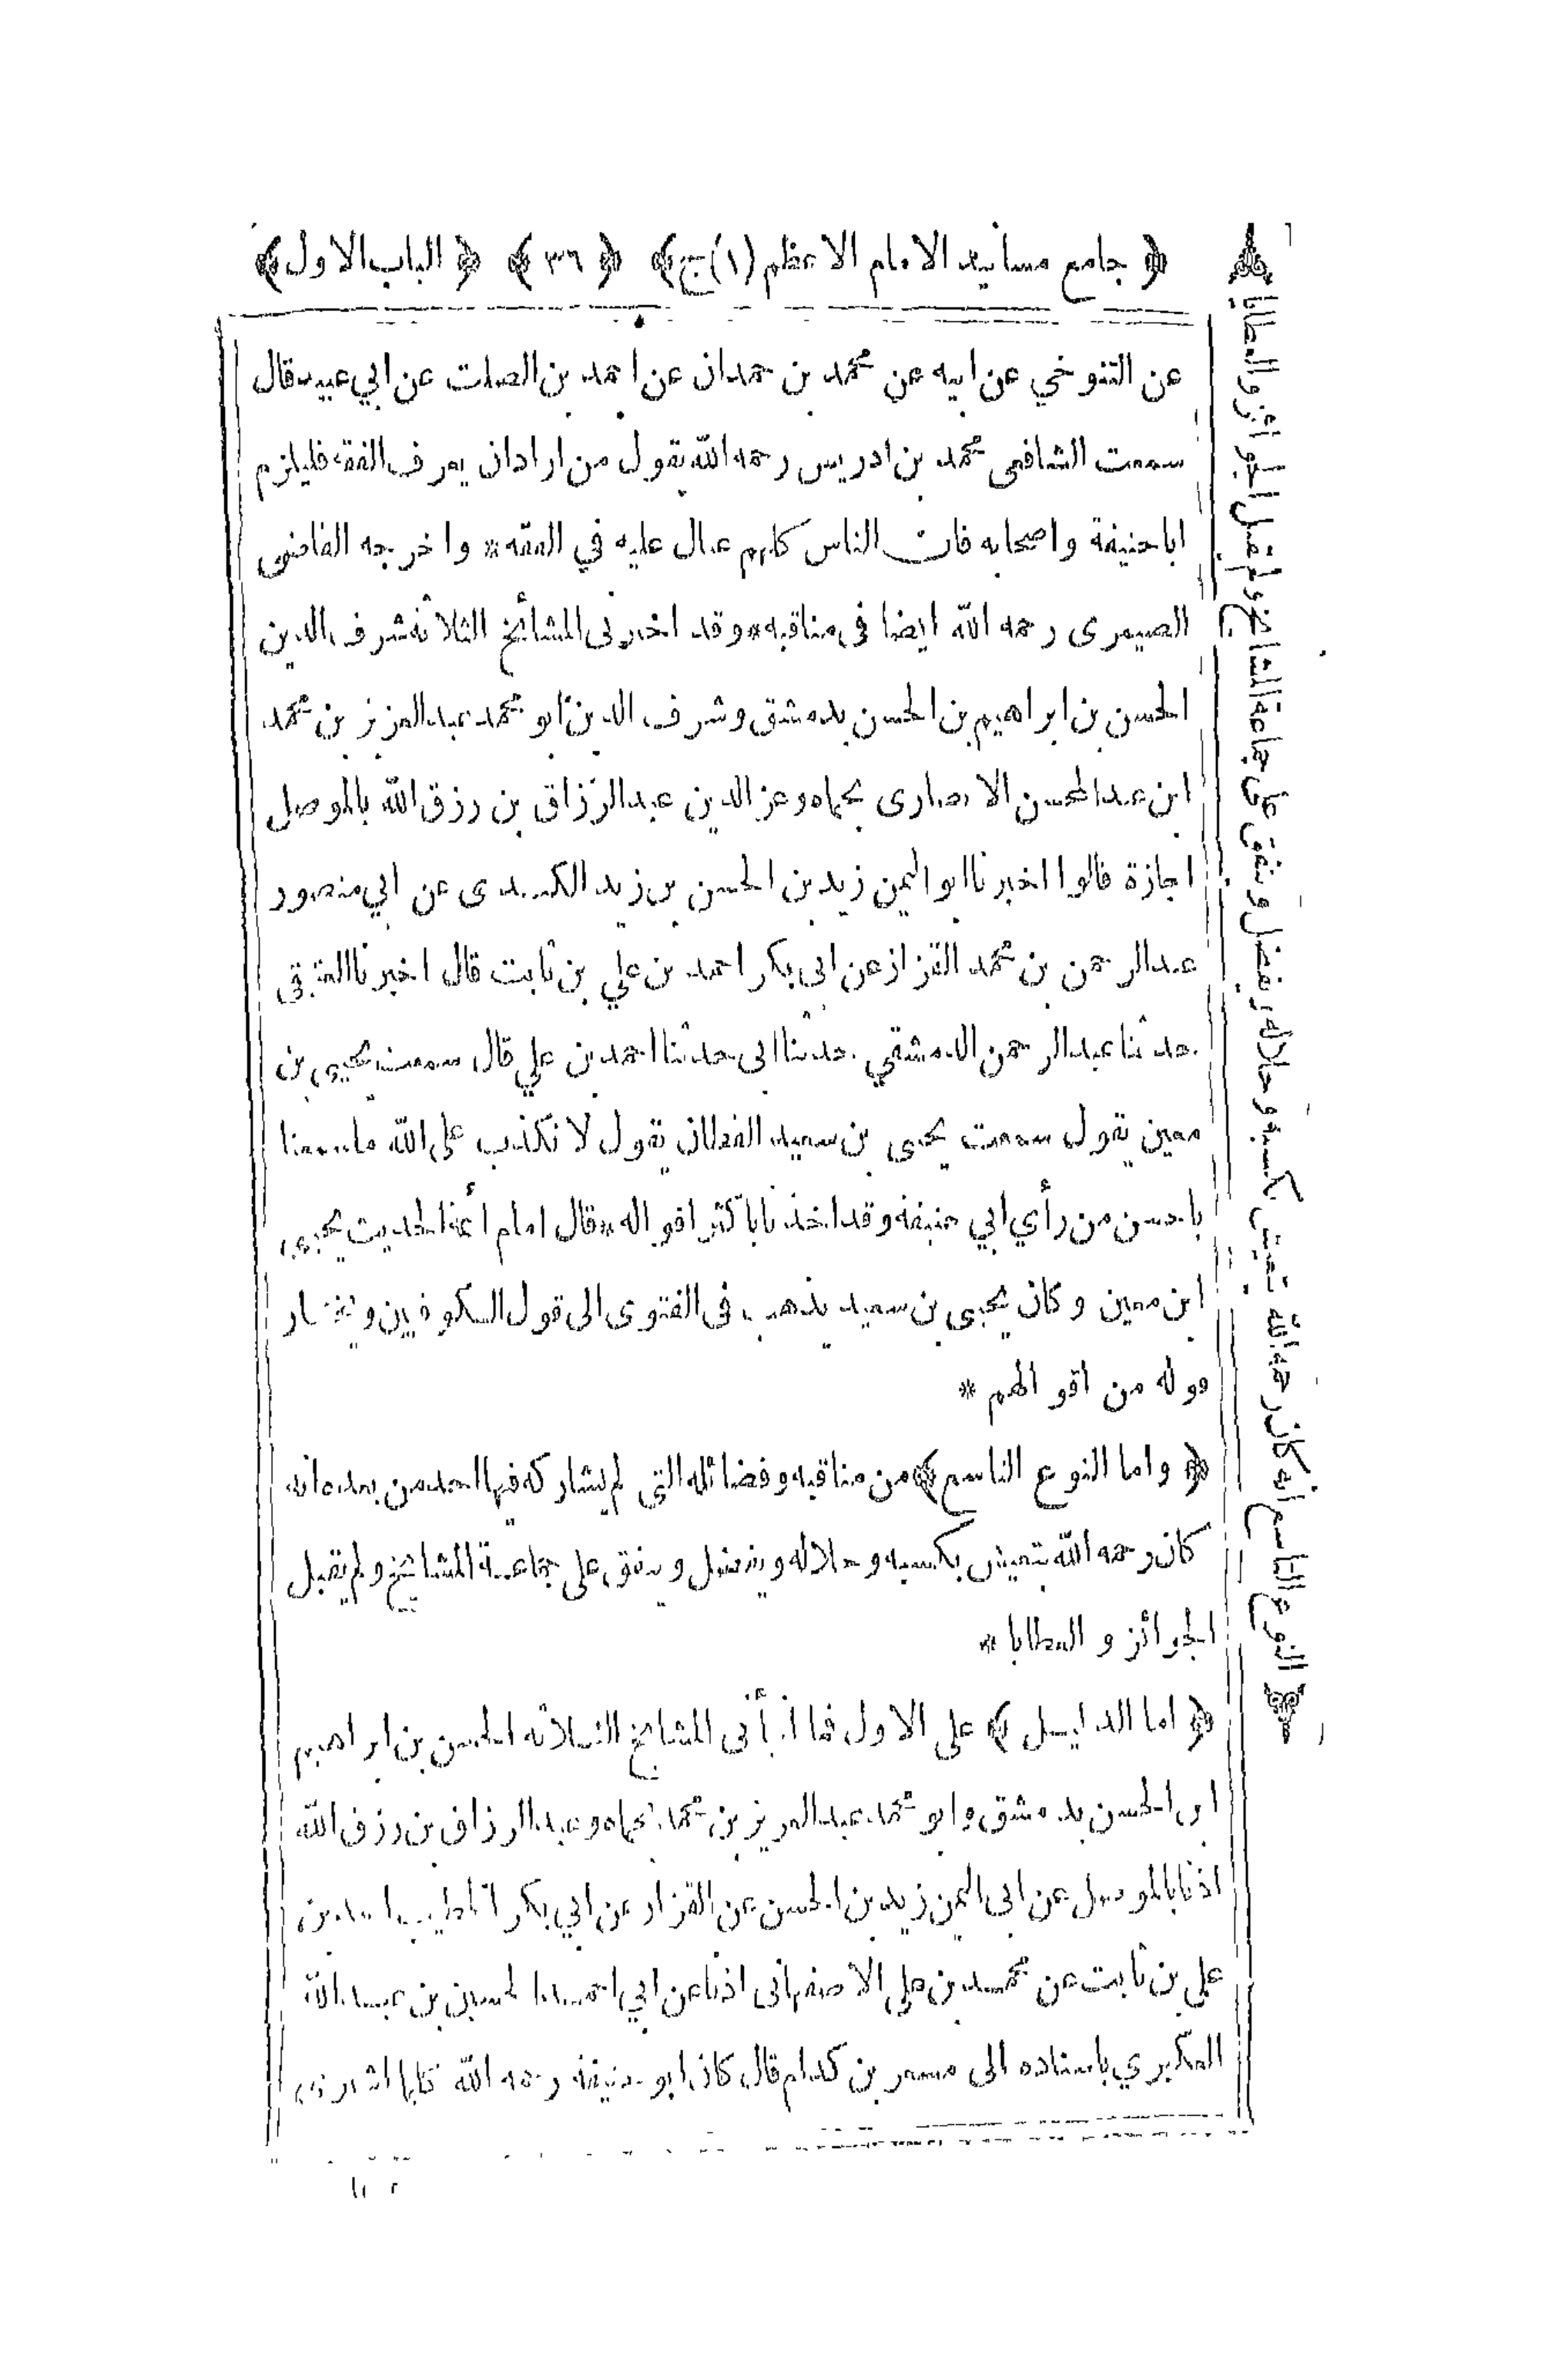 ﴿ جامع مسانيد الامام الاعظم (١) ج ﴾ ﴿ ٣٦ ﴾ ﴿ الباب الاول ﴾
عن التنوخي عن ابيه عن محمد بن حمدان عن احمد بن الصلت عن ابي عبيد قال
سمعت الشافعى محمد بن ادريس رحمه الله يقول من اراد ان يعرف الفقه فليلزم
ابا حنيفة واصحابه فان الناس كلهم عيال عليه في الفقه * واخرجه القاضى
الصيمرى رحمه الله ايضا فى مناقبه * وقد اخبرنى المشائخ الثلاثة شرف الدين
الحسن بن ابراهيم بن الحسن بدمشق وشرف الدين ابو محمد عبد العزيز بن محمد
ابن عبد المحسن الانصارى بحماه وعز الدين عبد الرزاق بن رزق الله بالموصل
اجازة قالوا اخبرنا ابو اليمن زيد بن الحسن بن زيد الكندى عن ابي منصور
عبد الرحمن بن محمد القزاز عن ابى بكر احمد بن علي بن ثابت قال اخبرنا العتيقي
حدثنا عبد الرحمن الدمشقي حدثنا ابى حدثنا احمد بن علي قال سمعت يحيى بن
معين يقول سمعت يحيى بن سعيد القطان يقول لا نكذب على الله ما سمعنا
باحسن من رأي ابي حنيفة وقد اخذنا باكثر اقواله * قال امام أئمة الحديث يحيى
ابن معين وكان يحيى بن سعيد يذهب فى الفتوى الى قول الكوفيين ويختار
قوله من اقوالهم *
﴿ واما النوع التاسع ﴾ من مناقبه وفضائله التى لم يشاركه فيها احد من بعده انه
كان رحمه الله يتعيش بكسبه وحلاله ويتفضل وينفق على جماعة المشايخ ولم يقبل
الجوائز و العطايا *
﴿ اما الدليل ﴾ على الاول فما انبأنى المشايخ الثلاثة الحسن بن ابراهيم
ابن الحسن بدمشق وابو محمد عبد العزيز بن محمد بحماه وعبد الرزاق بن رزق الله
اذنا بالموصل عن ابى اليمن زيد بن الحسن عن القزاز عن ابي بكر الخطيب احمد بن
علي بن ثابت عن محمد بن علي الاصفهانى اذنا عن ابي احمد الحسين بن عبد الله
العكبري باسناده الى مسعر بن كدام قال كان ابو حنيفة رحمه الله كلما اشترى
النوع التاسع أنه كان رحمه الله يتعيش بكسبه وحلاله ويتفضل وينفق على جماعة المشايخ ولم يقبل الجوائز والعطايا